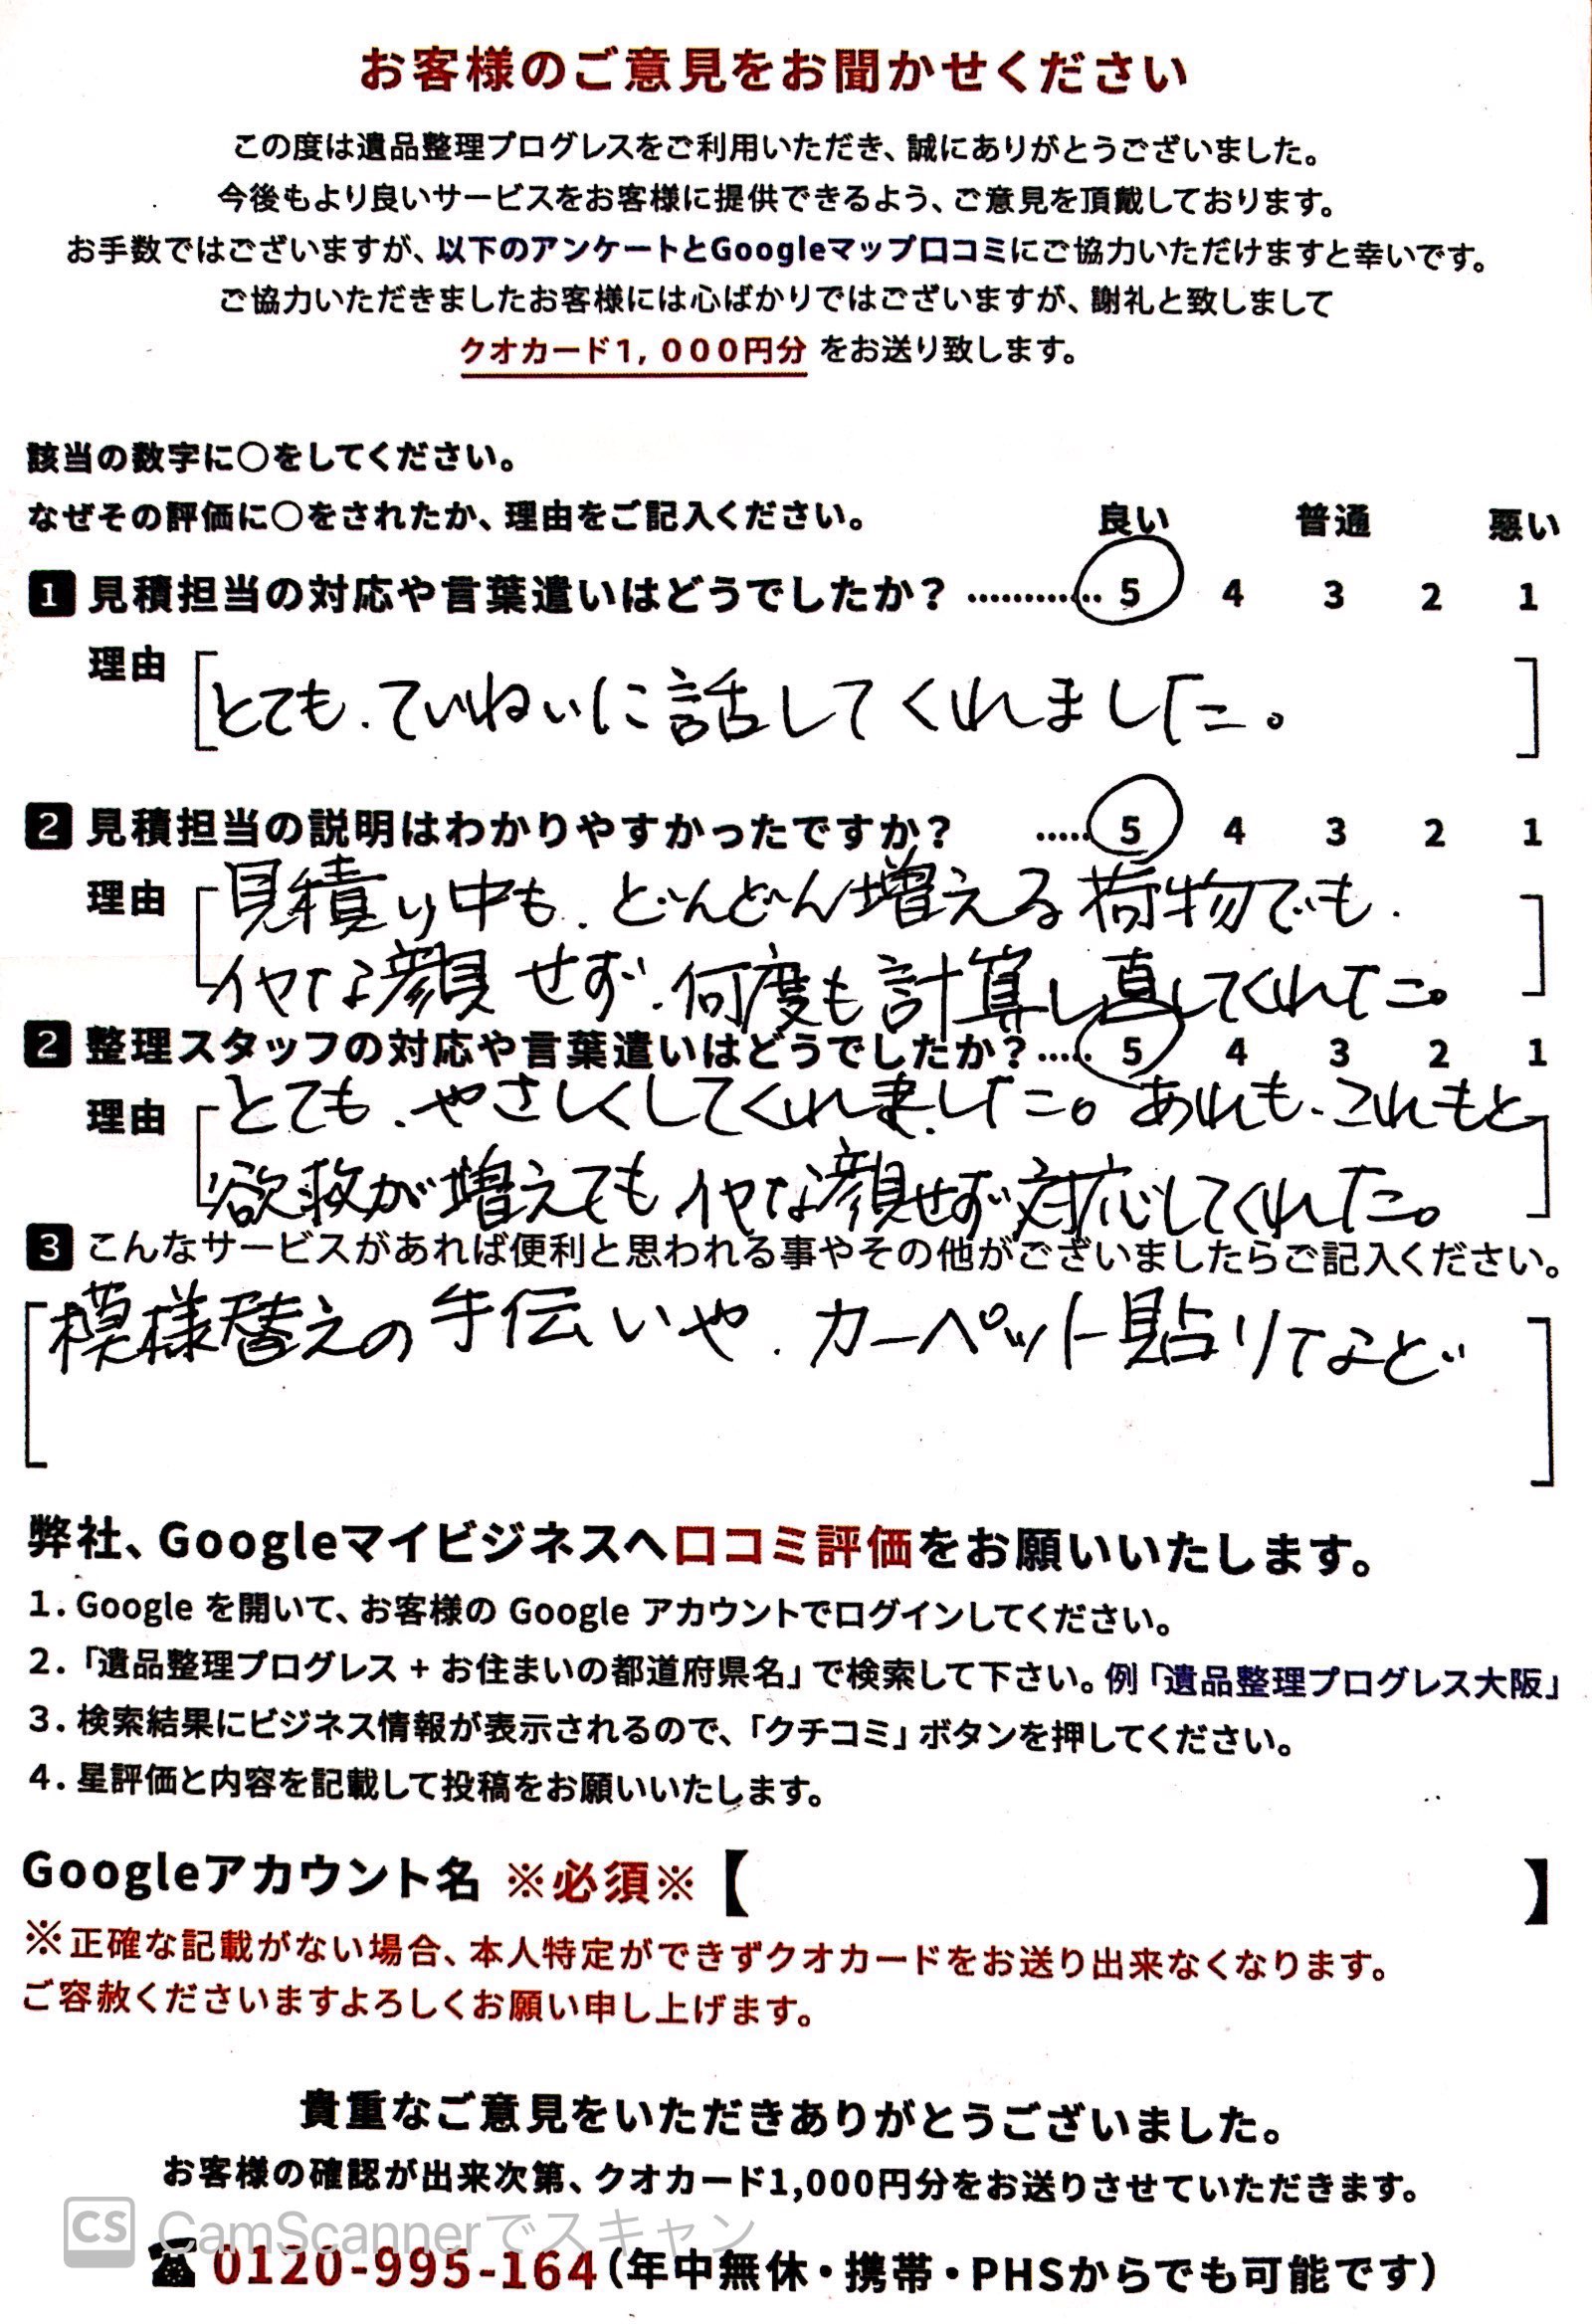 お客様のご意見をお聞かせください
この度は遺品整理プログレスをご利用いただき、誠にありがとうございました。
今後もより良いサービスをお客様に提供できるよう、ご意見を頂戴しております。
お手数ではございますが、以下のアンケートとGoogleマップ口コミにご協力いただけますと幸いです。
ご協力いただきましたお客様には心ばかりではございますが、謝礼と致しまして
クオカード1,000円分 をお送り致します。
該当の数字に〇をしてください。
なぜその評価に〇をされたか、理由をご記入ください。 良い 普通 悪い
1 見積担当の対応や言葉遣いはどうでしたか？ ………… 5 4 3 2 1
理由 [とても、ていねいに話してくれました。]
2 見積担当の説明はわかりやすかったですか？ …… 5 4 3 2 1
理由 [見積り中も、どんどん増える荷物でも、
イヤな顔せず、何度も計算し直してくれた。]
2 整理スタッフの対応や言葉遣いはどうでしたか？…… 5 4 3 2 1
理由 [とても、やさしくしてくれました。あれも、これもと
欲が増えてもイヤな顔せず対応してくれた。]
3 こんなサービスがあれば便利と思われる事やその他がございましたらご記入ください。
[模様替えの手伝いや、カーペット貼りなど]
弊社、Googleマイビジネスへ口コミ評価をお願いいたします。
1. Google を開いて、お客様の Google アカウントでログインしてください。
2. 「遺品整理プログレス + お住まいの都道府県名」で検索して下さい。例「遺品整理プログレス大阪」
3. 検索結果にビジネス情報が表示されるので、「クチコミ」ボタンを押してください。
4. 星評価と内容を記載して投稿をお願いいたします。
Googleアカウント名 ※必須※【 】
※正確な記載がない場合、本人特定ができずクオカードをお送り出来なくなります。
ご容赦くださいますよろしくお願い申し上げます。
貴重なご意見をいただきありがとうございました。
お客様の確認が出来次第、クオカード1,000円分をお送りさせていただきます。
CS CamScannerでスキャン
☎0120-995-164（年中無休・携帯・PHSからでも可能です）